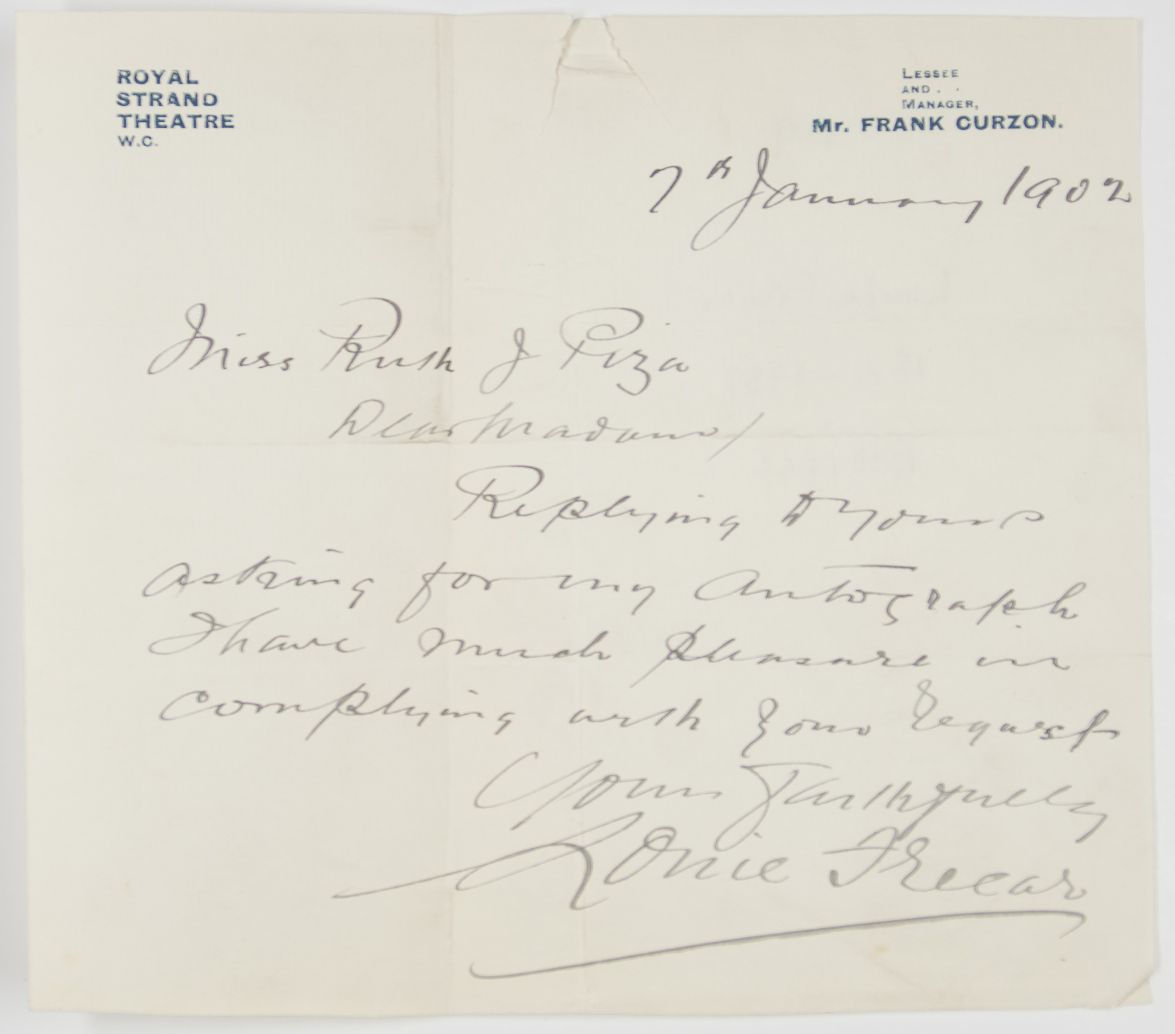 ROYAL
STRAND
THEATRE
W.C.
LESSEE
AND . .
MANAGER,
Mr. FRANK CURZON.
7th January 1902
Miss Ruth J Piza
Dear Madam/
Replying to yours
asking for my Autograph
I have much pleasure in
complying with your request
Yours Faithfully
Louie Freear